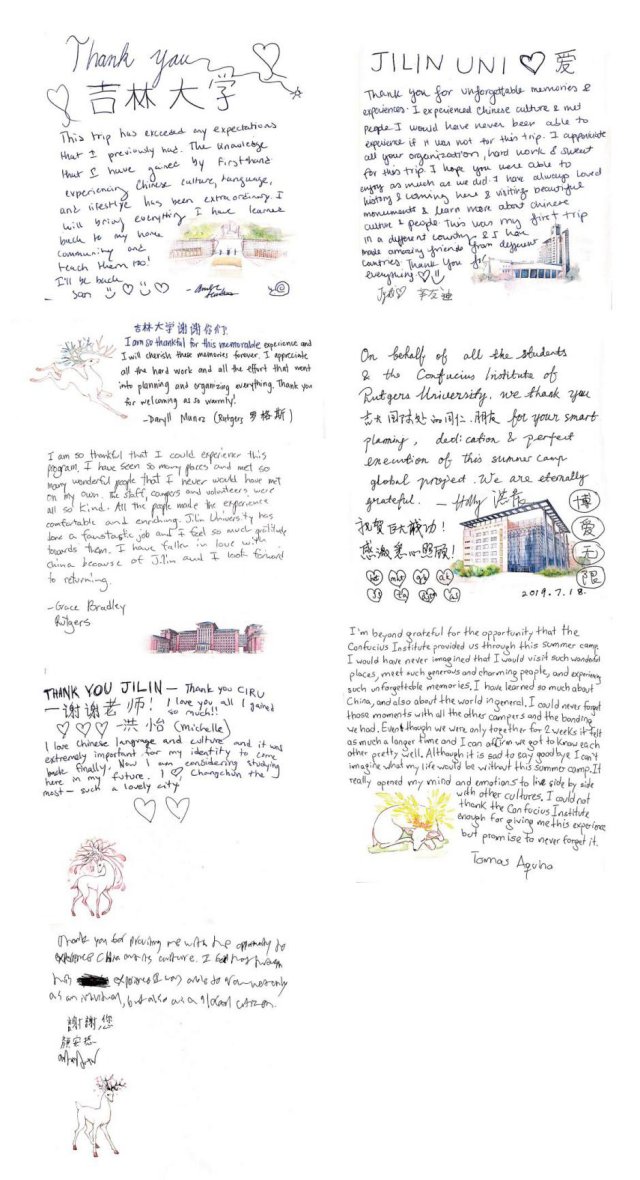 Thank you
吉林大学
This trip has exceeded my expectations
that I previously had. The knowledge
that I have gained by firsthand
experiencing Chinese culture, language,
and lifestyle has been extraordinary. I
will bring everything I have learned
back to my home
community and
teach them too!
I'll be back
soon
吉林大学谢谢你们
I am so thankful for this memorable experience and
I will cherish these memories forever. I appreciate
all the hard work and all the effort that went
into planning and organizing everything. Thank you
for welcoming us so warmly!
-Daryll Munoz (Rutgers 罗格斯)
I am so thankful that I could experience this
program. I have seen so many places and met so
many wonderful people that I never would have met
on my own. The staff, campers and volunteers were
all so kind. All the people made the experience
comfortable and enriching. Jilin University has
done a fantastic job and I feel so much gratitude
towards them. I have fallen in love with
China because of Jilin and I look forward
to returning.
-Grace Bradley
Rutgers
THANK YOU JILIN — Thank you CIRU
I love you all I gained
so much!!
一谢谢老师!
洪怡 (Michelle)
I love Chinese language and culture and it was
extremely important for my identity to come
back finally. Now I am considering studying
here in my future. I ♡ Changchun the
most — such a lovely city
Thank you for providing me with the opportunity to
experience China and its culture. I
this experience I was able to grow not only
as an individual, but also as a global citizen.
謝謝您
JILIN UNI ♡ 爱
Thank you for unforgettable memories &
experiences. I experienced Chinese culture & met
people I would have never been able to
experience if it was not for this trip. I appreciate
all your organization, hard work & sweat
for this trip I hope you were able to
enjoy as much as we did I have always loved
history & coming here & visiting beautiful
monuments & learn more about chinese
culture & people. This was my first trip
in a different country & I have
made amazing friends from different
countries. Thank You for
everything ♡
On behalf of all the students
& the Confucius Institute of
Rutgers University, we thank you
吉大国际处的同仁、朋友 for your smart
planning, dedication & perfect
execution of this summer camp
global project. We are eternally
grateful. — Holly
祝贺巨大成功!
感激悉心照顾!
博
爱
无
限
2019.7.18.
I'm beyond grateful for the opportunity that the
Confucius Institute provided us through this summer camp.
I would have never imagined that I would visit such wonderful
places, meet such generous and charming people, and experience
such unforgettable memories. I have learned so much about
China, and also about the world in general. I could never forget
those moments with all the other campers and the bonding
we had. Even though we were only together for 2 weeks it felt
as much a longer time and I can affirm we got to know each
other pretty well. Although it is sad to say goodbye I can't
imagine what my life would be without this summer camp. It
really opened my mind and emotions to live side by side
with other cultures. I could not
thank the Confucius Institute
enough for giving me this experience
but promise to never forget it.
Tomas Aquino